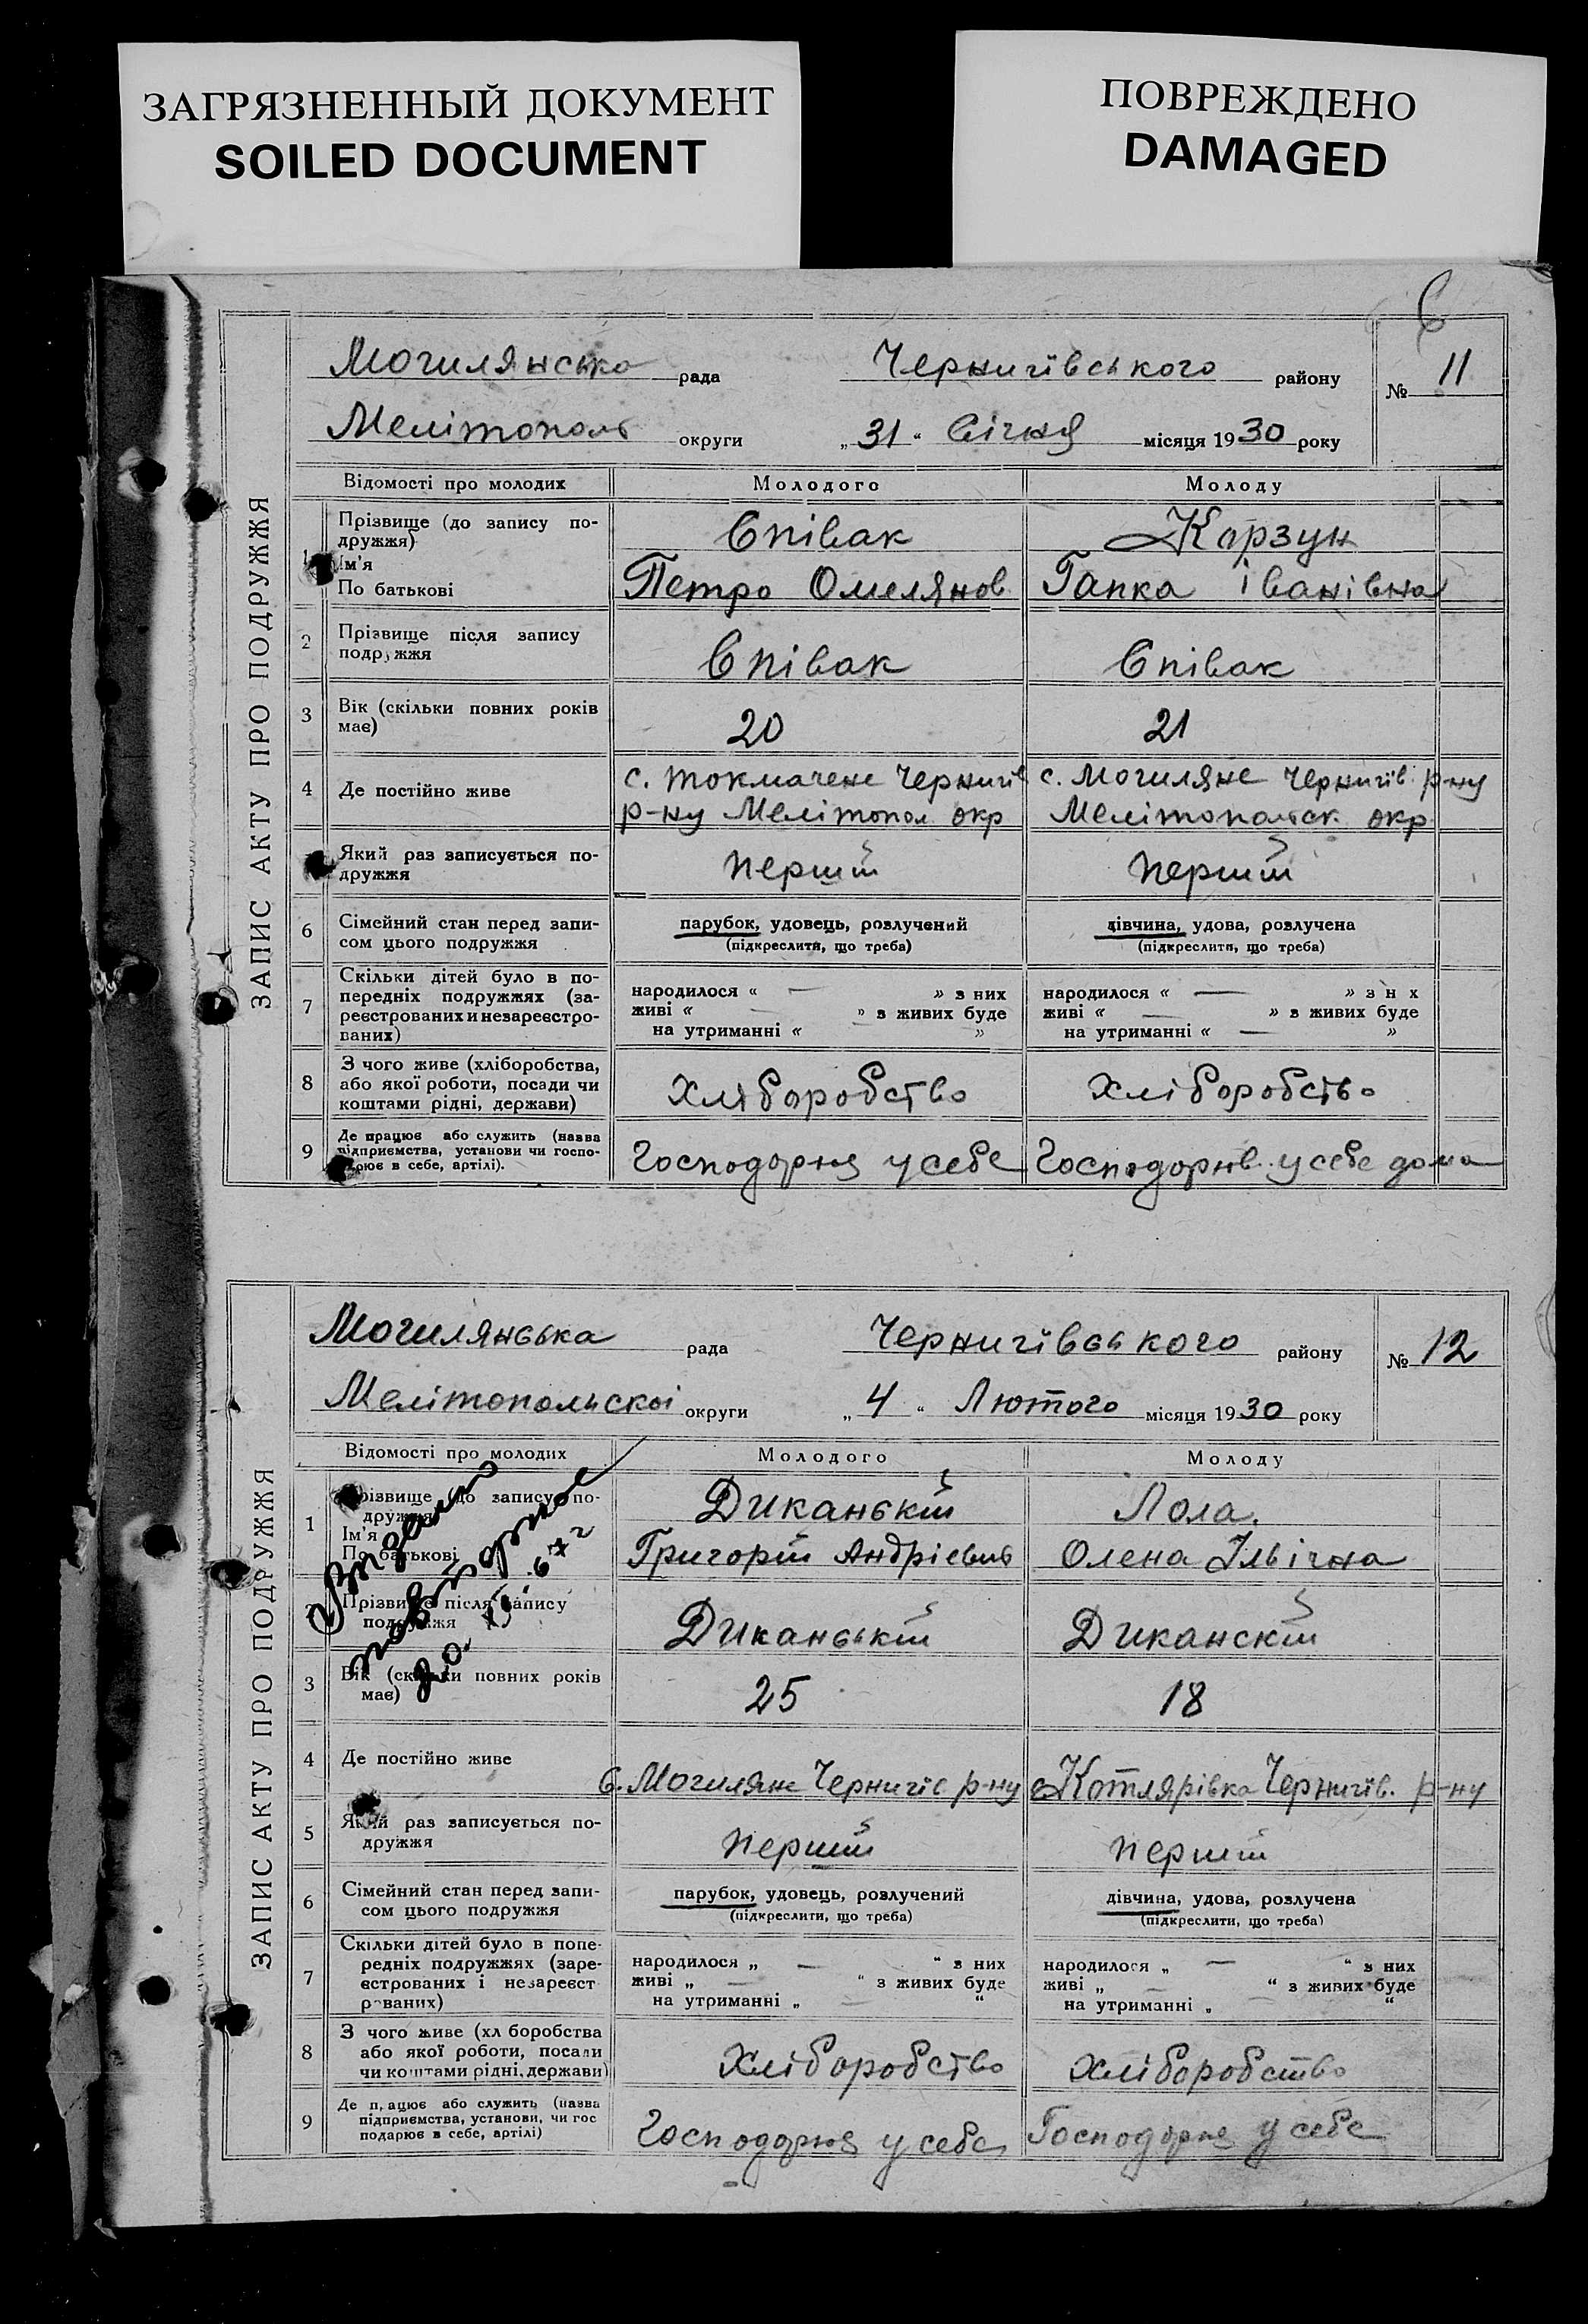 ЗАГРЯЗНЕННЫЙ ДОКУМЕНТ
SOILED DOCUMENT
ПОВРЕЖДЕНО
DAMAGED
6
ЗАПИС АКТУ ПРО ПОДРУЖЖЯ
Могилянська рада Чернигівського району № 11
Мелітополь округи „31“ Січня місяця 1930 року
Відомості про молодих Молодого Молоду
1 Прізвище (до запису по-
дружжя) Співак Корзун
Ім'я
По батькові Петро Омелянов Гапка Іванівна
2 Прізвище після запису
подружжя Співак Співак
3 Вік (скільки повних років
має) 20 21
4 Де постійно живе с. Токмачене Чернигів с. Могиляне Чернигів р-ну
р-ну Мелітопол окр Мелітопольск окр
Який раз записується по-
дружжя перший перший
6 Сімейний стан перед запи-
сом цього подружжя парубок, удовець, розлучений дівчина, удова, розлучена
(підкреслити, що треба) (підкреслити, що треба)
7 Скільки дітей було в по-
передніх подружжях (за-
реєстрованих и незареєстро-
ваних)
народилося « — » з них народилося « — » з н х
живі « — » з живих буде живі « — » з живих буде
на утриманні « — » на утриманні « — »
8 З чого живе (хліборобства,
або якої роботи, посади чи
коштами рідні, держави) Хліборобство Хліборобство
9 Де працює або служить (назва
підприємства, установи чи госпо-
дарює в себе, артілі). Господорює у себе Господорюв. у себе дома
ЗАПИС АКТУ ПРО ПОДРУЖЖЯ
Могилянська рада Чернигівського району № 12
Мелітопольскоі округи „4“ Лютого місяця 1930 року
Відомості про молодих Молодого Молоду
1 Прізвище (до запису по-
дружжя Диканський Лола.
Ім'я
По батькові Григорій Андрієвич Олена Ільічна
2 Прізвище після запису
подружжя Диканський Диканский
3 Вік (скільки повних років
має) 25 18
4 Де постійно живе с. Могиляне Чернигів р-ну с Котлярівка Чернигів. р-ну
5 Який раз записується по-
дружжя перший перший
6 Сімейний стан перед запи-
сом цього подружжя парубок, удовець, розлучений дівчина, удова, розлучена
(підкреслити, що треба) (підкреслити, що треба)
7 Скільки дітей було в попе-
редніх подружжях (заре-
єстрованих і незареєст
рованих)
народилося „ — “ з них народилося „ — “ з них
живі „ — “ з живих буде живі „ — “ з живих буде
на утриманні „ — “ на утриманні „ — “
8 З чого живе (хл боробства
або якої роботи, посади
чи коштами рідні, держави) Хліборобство Хліборобство
9 Де п, ацює або служить (назва
підприємства, установи, чи гос
подарює в себе, артілі) Господорює у себе Господорює у себе